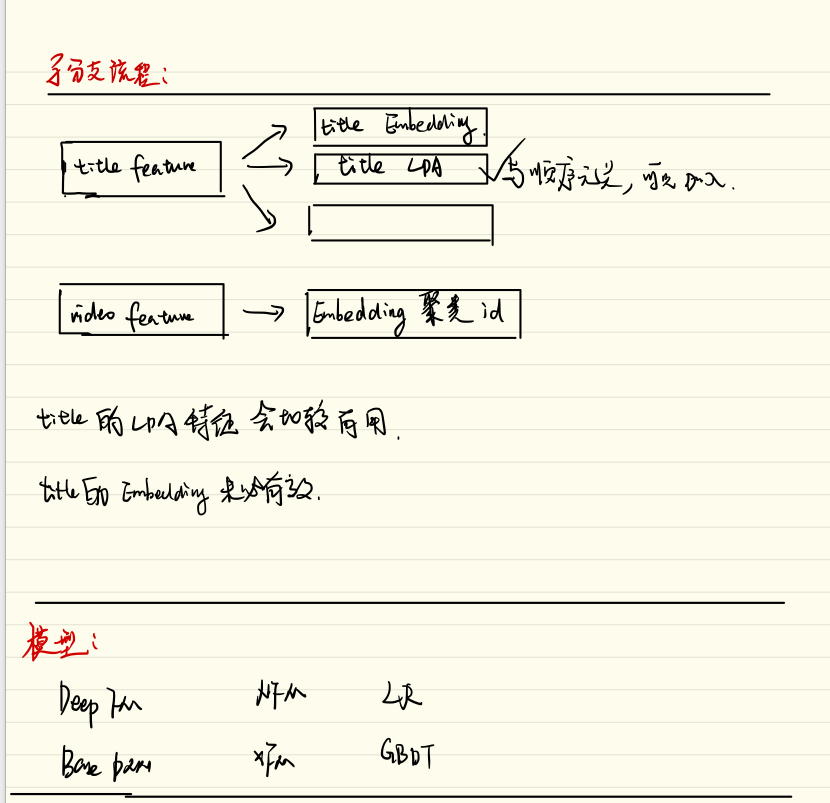 子分支流程:
title Embedding.
title feature
title LDA
与顺序无关, 可以加入.
video feature
Embedding 聚类 id
title 的 LDA 特征 会比较有用.
title的 Embedding 未必有效.
模型:
Deep Fm NFm LR
Base xFm GBDT